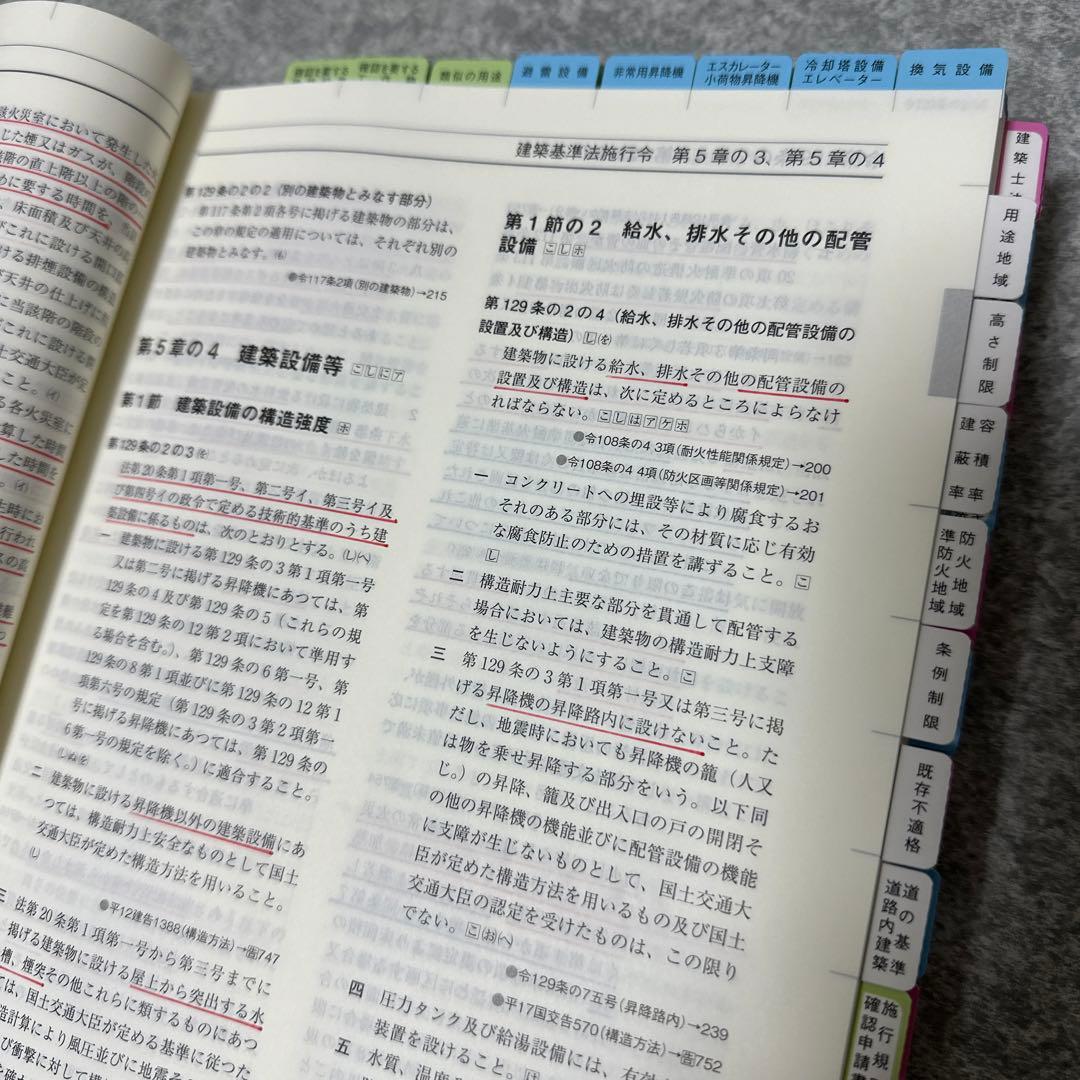 確認を要する
確認を要する
類似の用途
避雷設備
非常用昇降機
エスカレーター
小荷物昇降機
冷却塔設備
エレベーター
換気設備
建築基準法施行令　第5章の3、第5章の4
火災室において発生した
じた煙又はガスが、階段の
階の直上階以上の階の
めに要する時間を、
、床面積及び天井の
びこれに設ける開口部
ける排煙設備の構造
び天井の仕上げに
に当該階の階段の
びこれに設ける
国土交通大臣が定
こと。(イ)
る各火災室に
算した時間
した時間を
第129条の2の2（別の建築物とみなす部分）
第117条第2項各号に掲げる建築物の部分は、
この章の規定の適用については、それぞれ別の
建築物とみなす。(も)
●令117条2項（別の建築物）→215
第5章の4　建築設備等 こしにア
第1節　建築設備の構造強度 ホ
第129条の2の3(を)
法第20条第1項第一号、第二号イ、第三号イ及
び第四号イの政令で定める技術的基準のうち建
築設備に係るものは、次のとおりとする。(し)(へ)
一　建築物に設ける第129条の3第1項第一号
又は第二号に掲げる昇降機にあつては、第
129条の4及び第129条の5（これらの規
定を第129条の12第2項において準用す
る場合を含む。）、第129条の6第一号、第
129条の8第1項並びに第129条の12第1
項第六号の規定（第129条の3第2項第一
号に掲げる昇降機にあつては、第129条の
6第一号の規定を除く。）に適合すること。
(し)(ぬ)(を)
二　建築物に設ける昇降機以外の建築設備にあ
つては、構造耐力上安全なものとして国土
交通大臣が定めた構造方法を用いること。
(し)
●平12建告1388（構造方法）→告747
三　法第20条第1項第一号から第三号までに
掲げる建築物に設ける屋上から突出する水
槽、煙突その他これらに類するものにあつ
ては、国土交通大臣が定める基準に従つた
構造計算により風圧並びに地震その
び衝撃に対して構
第1節の2　給水、排水その他の配管
設備 こしホ
第129条の2の4（給水、排水その他の配管設備の
設置及び構造）(し)(を)
建築物に設ける給水、排水その他の配管設備の
設置及び構造は、次に定めるところによらなけ
ればならない。こしはアケホ
●令108条の4 3項（耐火性能関係規定）→200
●令108条の4 4項（防火区画等関係規定）→201
一　コンクリートへの埋設等により腐食するお
それのある部分には、その材質に応じ有効
な腐食防止のための措置を講ずること。こ
し
二　構造耐力上主要な部分を貫通して配管する
場合においては、建築物の構造耐力上支障
を生じないようにすること。こ
三　第129条の3第1項第一号又は第三号に掲
げる昇降機の昇降路内に設けないこと。た
だし、地震時においても昇降機の籠（人又
は物を乗せ昇降する部分をいう。以下同
じ。）の昇降、籠及び出入口の戸の開閉そ
の他の昇降機の機能並びに配管設備の機能
に支障が生じないものとして、国土交通大
臣が定めた構造方法を用いるもの及び国土
交通大臣の認定を受けたものは、この限り
でない。こ(お)(へ)
●令129条の7五号（昇降路内）→239
●平17国交告570（構造方法）→告752
四　圧力タンク及び給湯設備には、有効
装置を設けること。
五　水質、温度
建築士法
用途地域
高さ制限
容積率
建蔽率
防火地域
準防火地域
条例制限
既存不適格
道の基準
道路内建築
施行規
確認申請書